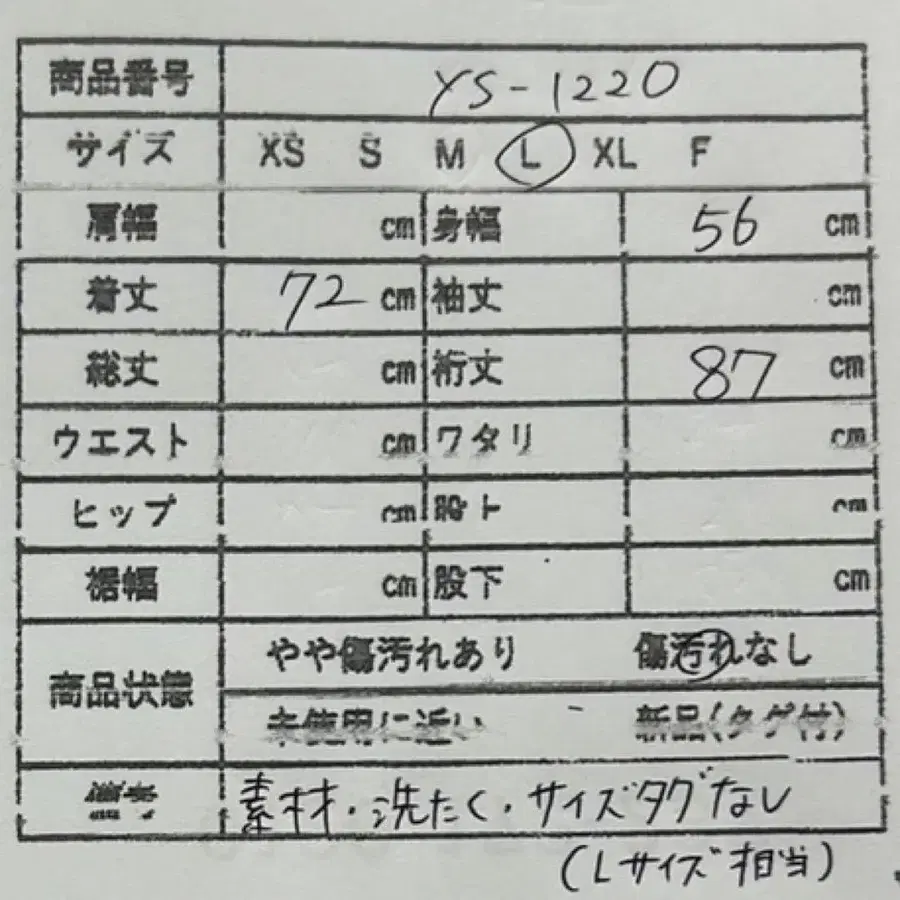 商品番号 YS-1220
サイズ XS S M L XL F
肩幅 cm 身幅 56 cm
着丈 72 cm 袖丈 cm
総丈 cm 裄丈 87 cm
ウエスト cm ワタリ cm
ヒップ cm 股上 cm
裾幅 cm 股下 cm
商品状態 やや傷汚れあり 傷汚れなし
未使用に近い 新品(タグ付)
素材・洗たく・サイズタグなし
(Lサイズ相当)